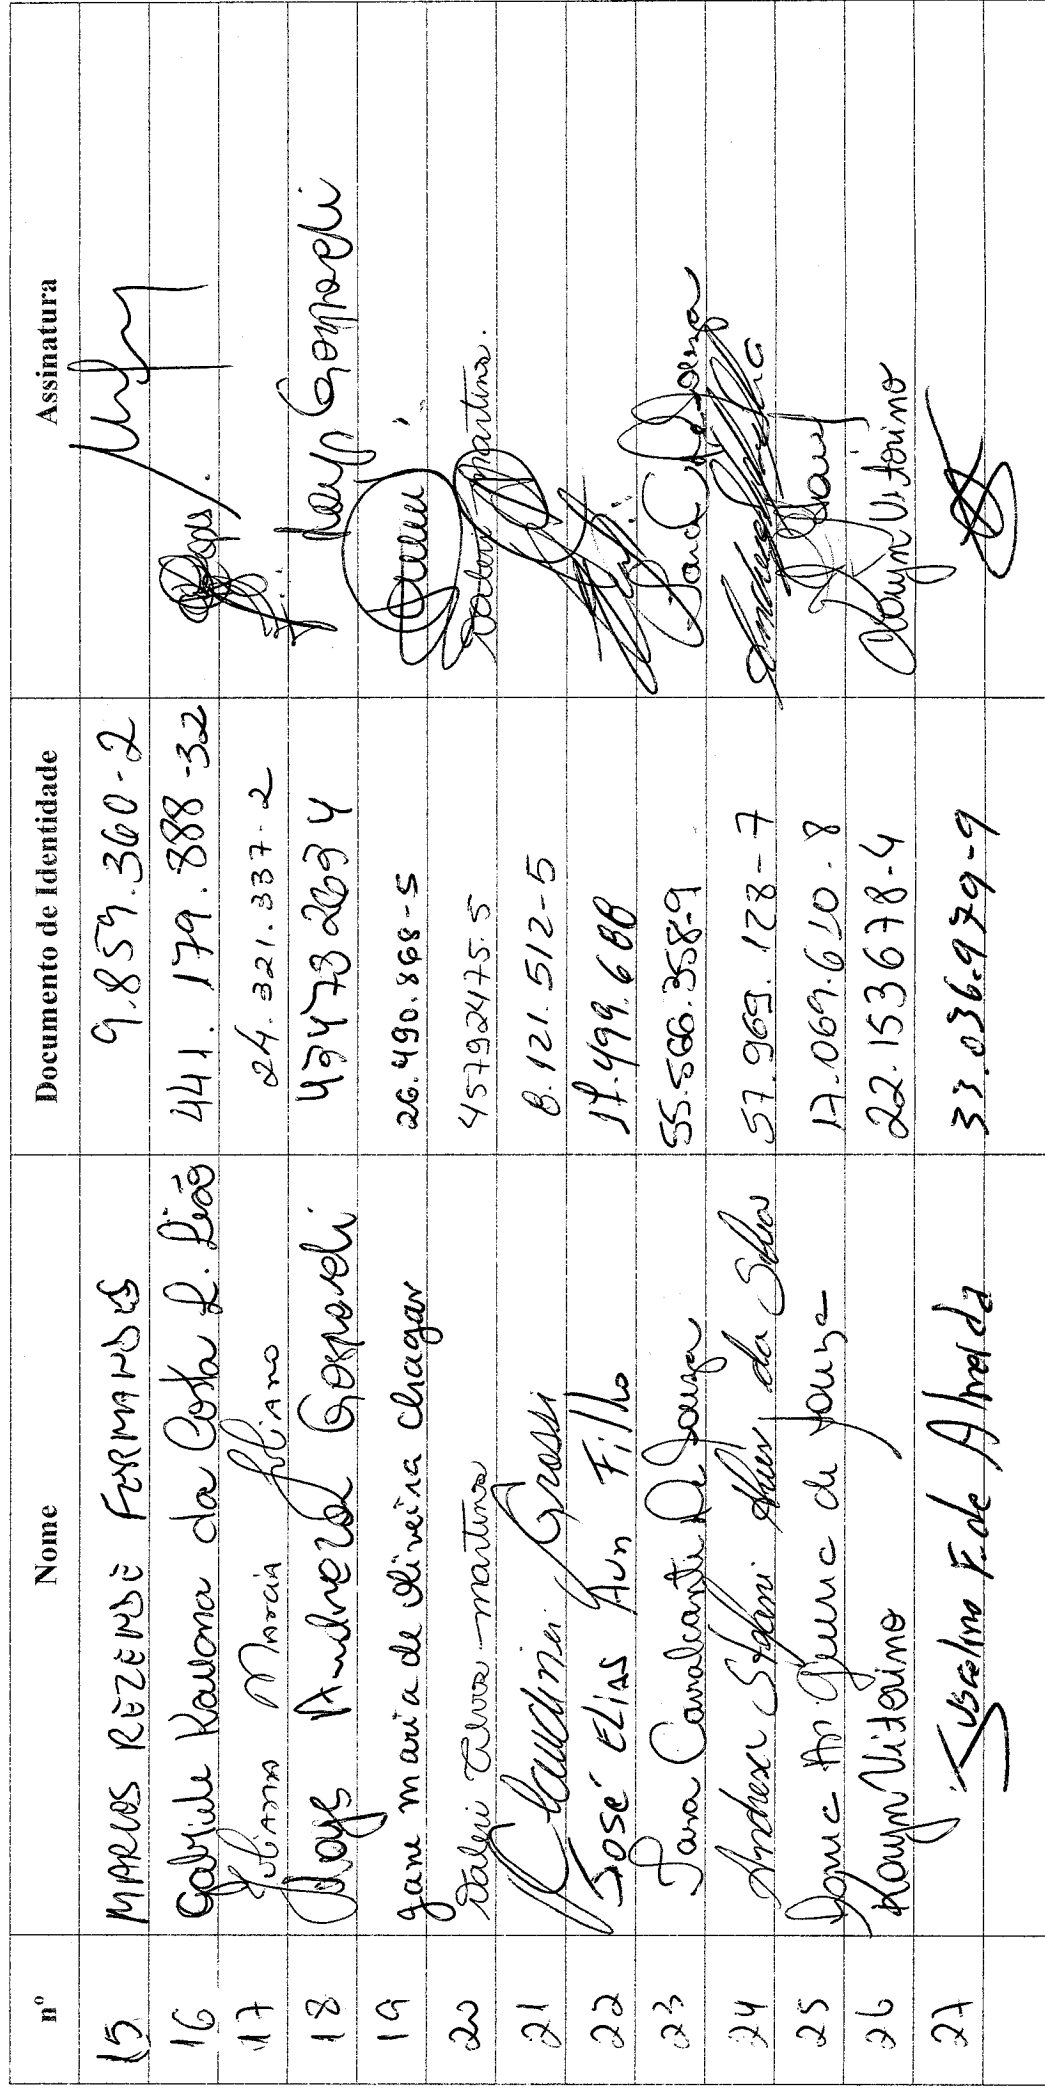 nº Nome Documento de Identidade Assinatura
15 MARCOS REZENDE FERNANDES 9.859.360-2
16 Gabriele Kauona da Costa L. Leão 441.179.888-32
17 Juliana Marcia Juliano 24.321.337-2
18 Mays Andreza Gasparelli 494732694 Mays Gasparelli
19 Jane maria de Oliveira chagar 26.490.868-5
20 Valeri martins 45792475.5 Valeri martins.
21 Claudinei Grossi 8.121.512-5
22 José Elias Aun Filho 17.499.688
23 Sara Cavalcante De Souza 55.566.358-9 Sara C de Souza
24 Andresa Stefani Alves da Silva 57.969.128-7
25 de Souza 17.069.610-8
26 Kauyn Vitorino 22.153678-4 Kauyn Vitorino
27 Juscelino F. de Almeida 33.036.979-9